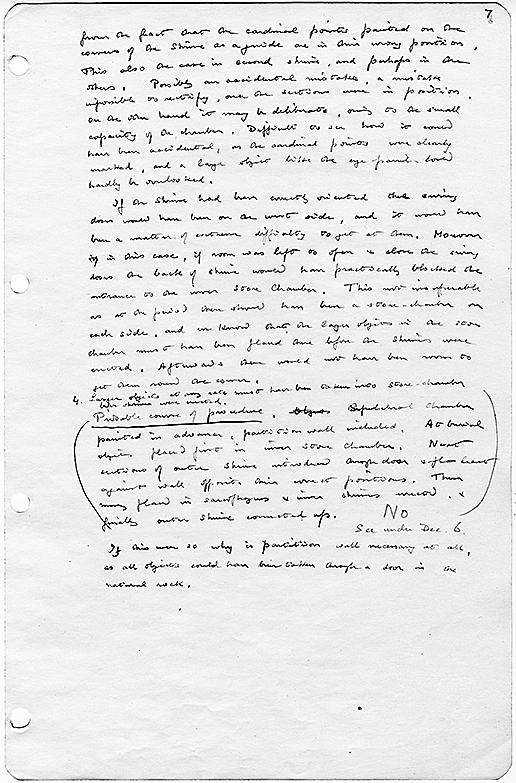 7
from the fact that the cardinal points, painted on the
corners of the shrine as a guide are in their wrong positions.
This also the case in second shrine, and perhaps in the
others. Possibly an accidental mistake, a mistake
impossible to rectify, once the sections were in position.
On the other hand it may be deliberate, owing to the small
capacity of the chamber. Difficult to see how it could
have been accidental, as the cardinal points were clearly
marked, and a large object like the eye panel could
hardly be overlooked.
If the shrine had been correctly oriented the swing
doors would have been on the west side, and it would have
been a matter of extreme difficulty to get at them. Moreover
in this case, if room was left to open & close the swing
doors the back of shrine would have practically blocked the
entrance to the inner store chamber. This not insuperable
as at the period there should have been a store-chamber on
each side, and we know that the larger objects in the store
chamber must have been placed there before the shrines were
erected. Afterwards there would not have been room to
get them round the corner.
4. Larger objects at any rate must have been taken into store-chamber
before shrines were erected.
Probable course of procedure. Sepulchral chamber
painted in advance, partition wall included. At burial
objects placed first in inner store chamber. Next
sections of outer shrine introduced through door & placed
against wall opposite their correct positions. Then
mummy placed in sarcophagus & inner shrines erected, &
finally outer shrine connected up. No
See under Dec. 6.
If this were so why is partition wall necessary at all,
as all objects could have been taken through a door in the
natural rock.